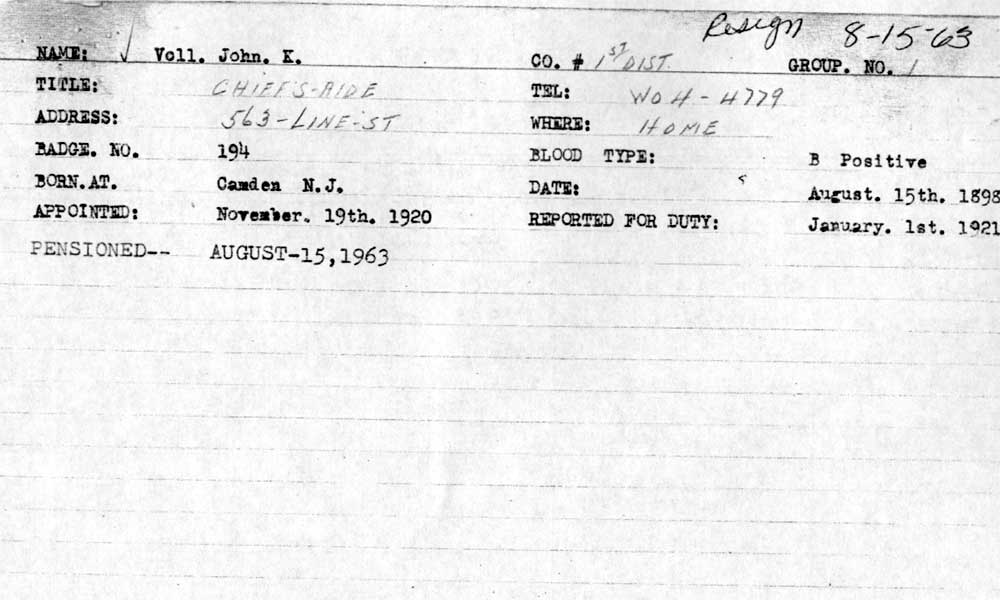 Resign 8-15-63
NAME: ✓ Voll. John. K. CO. # 1ST DIST. GROUP. NO. 1
TITLE: CHIEF'S-AIDE TEL: WO4-4779
ADDRESS: 563-LINE-ST WHERE: HOME
BADGE. NO. 194 BLOOD TYPE: B Positive
BORN.AT. Camden N.J. DATE: August. 15th. 1898
APPOINTED: November. 19th. 1920 REPORTED FOR DUTY: January. 1st. 1921
PENSIONED-- AUGUST-15,1963